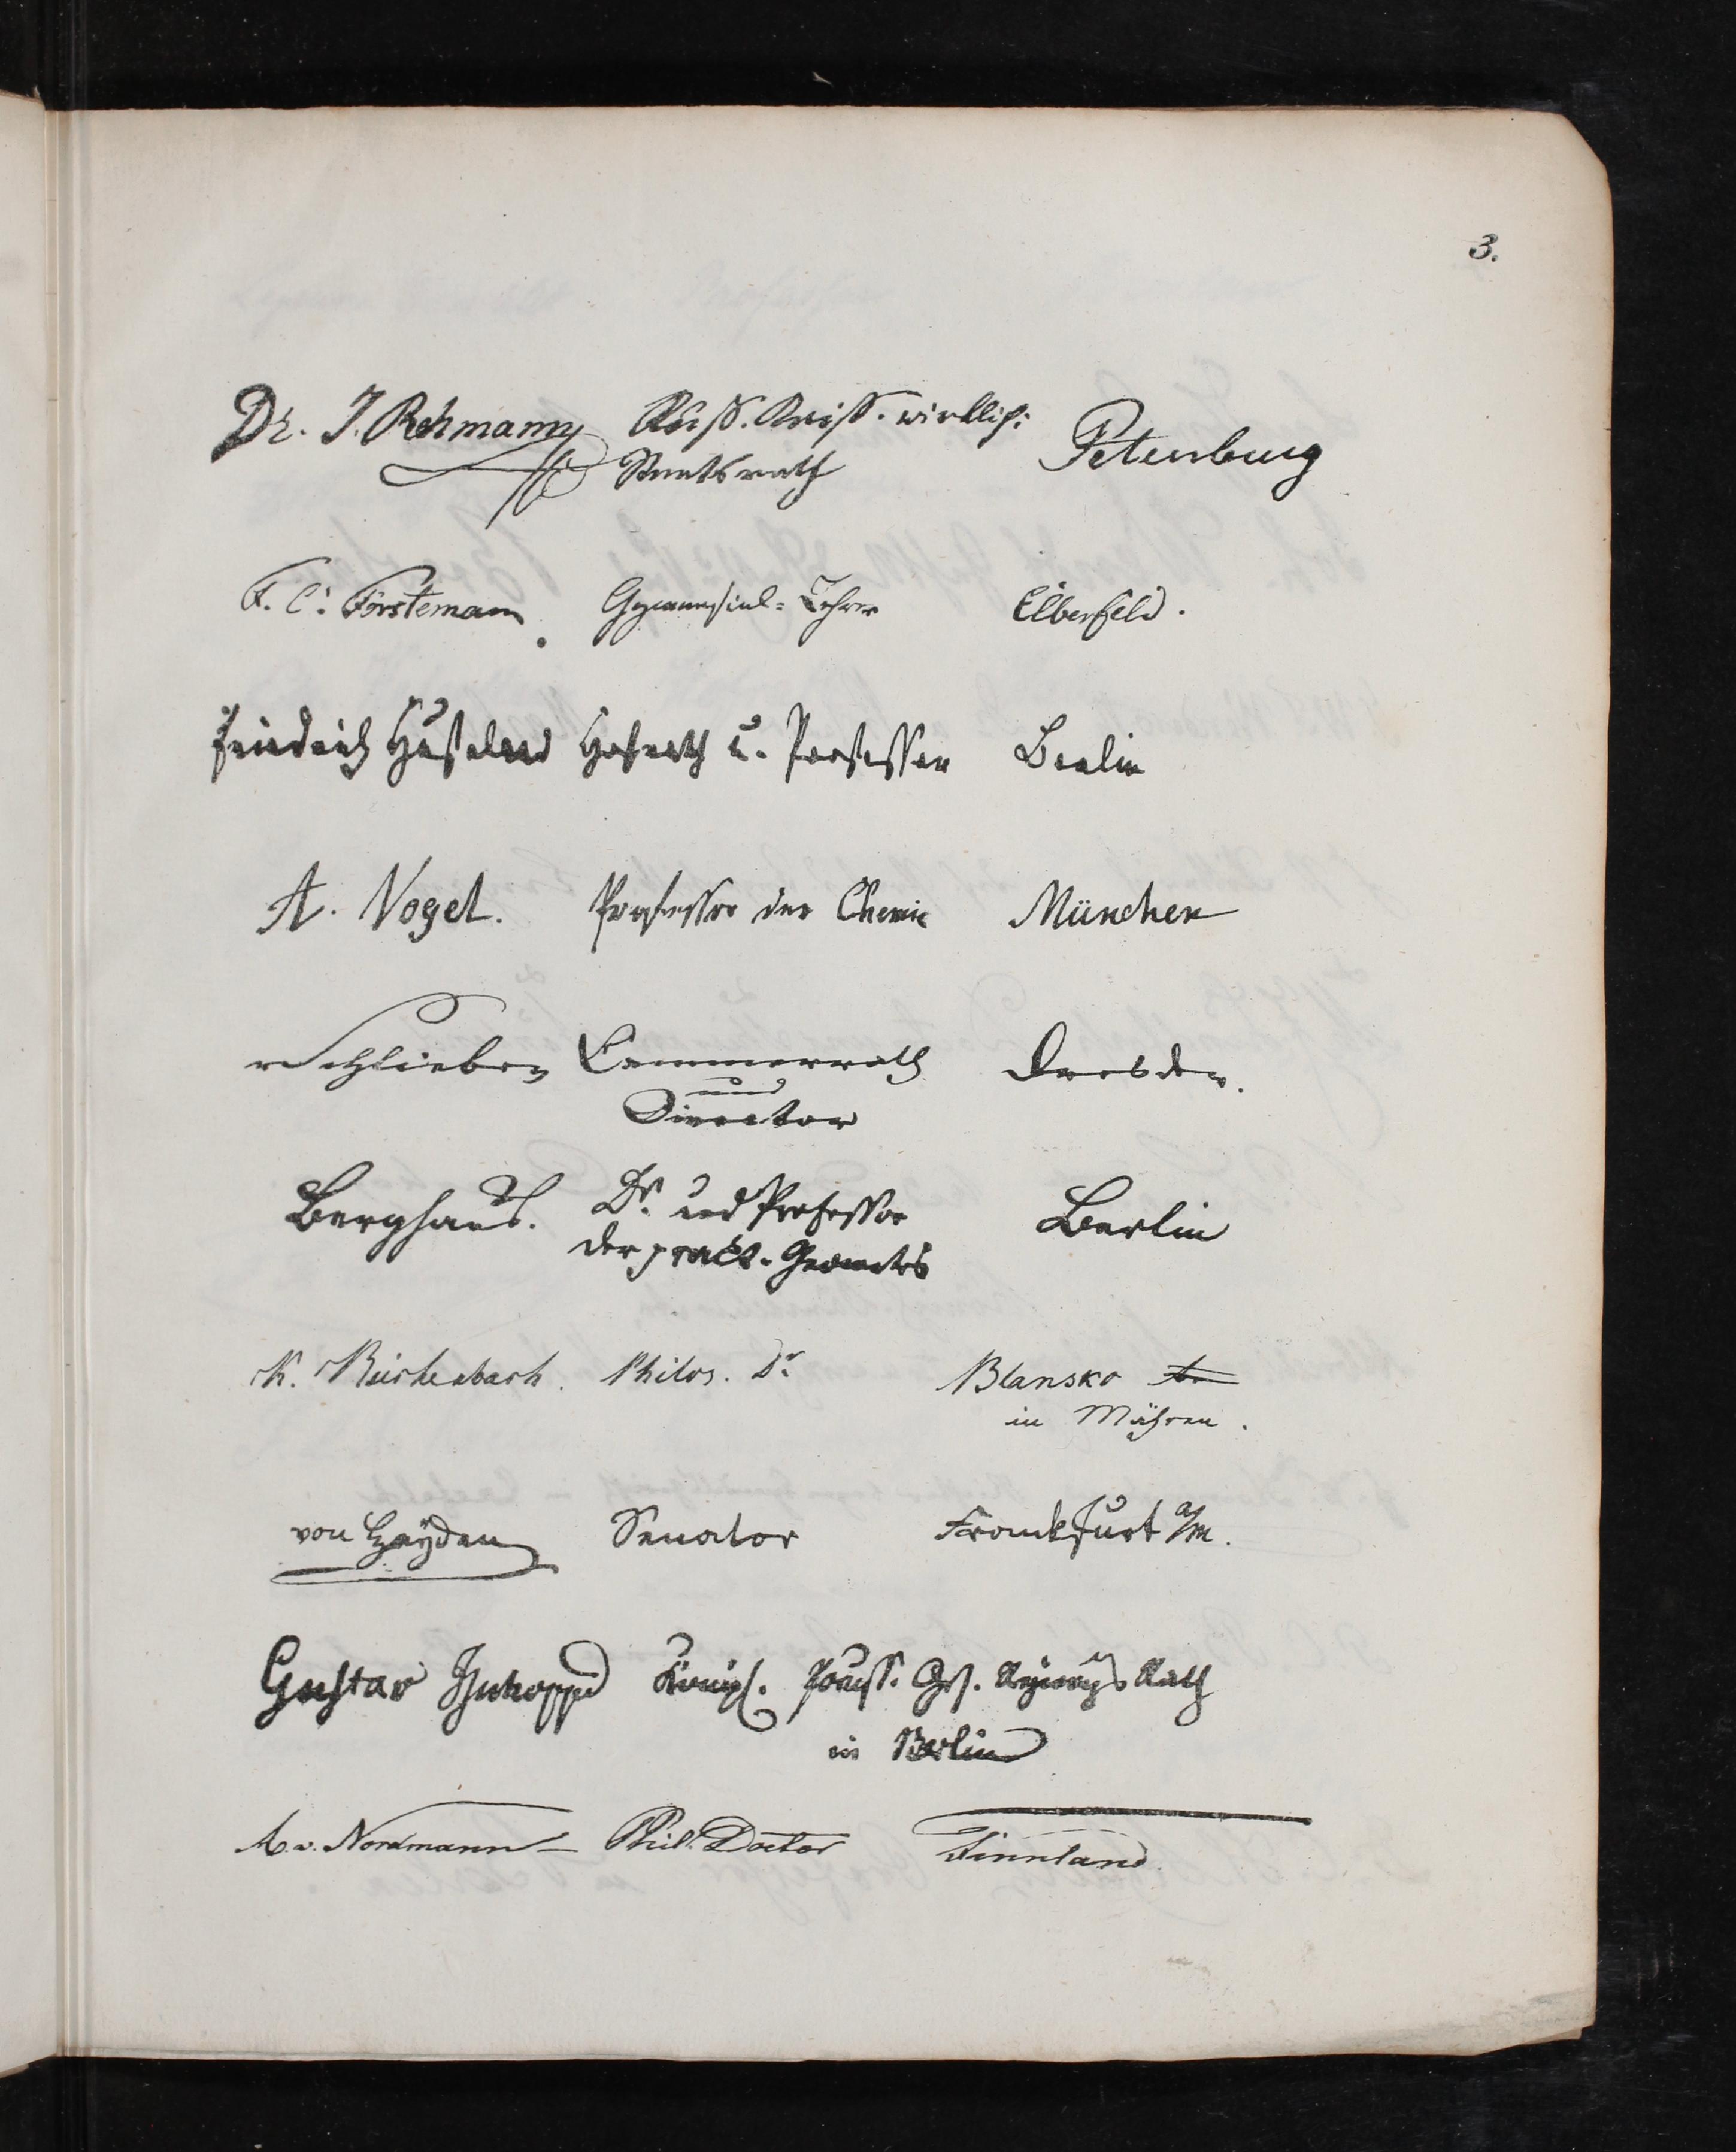 3.
Dr. J. Rehmann Russ. Kaiss. wirklich: Petersburg
Staatsrath
F. C. Förstemann. Gymnasial-Lehrer Elberfeld.
Friedrich Hufeland Hofrath u. Professor Berlin
A. Vogel. Professor der Chemie München
v Schlieben Cammerrath Dresden.
und
Director
Berghaus. Dr. und Professor Berlin
der pract. Geometrie
K. Reichenbach. Philos. Dr. Blansko
in Mähren.
von Heyden Senator Frankfurt a/M.
Gustav Königl. Preuss. Geh. Regierungs Rath
in Berlin
A. v. Nordmann Phil. Doctor Finnland.